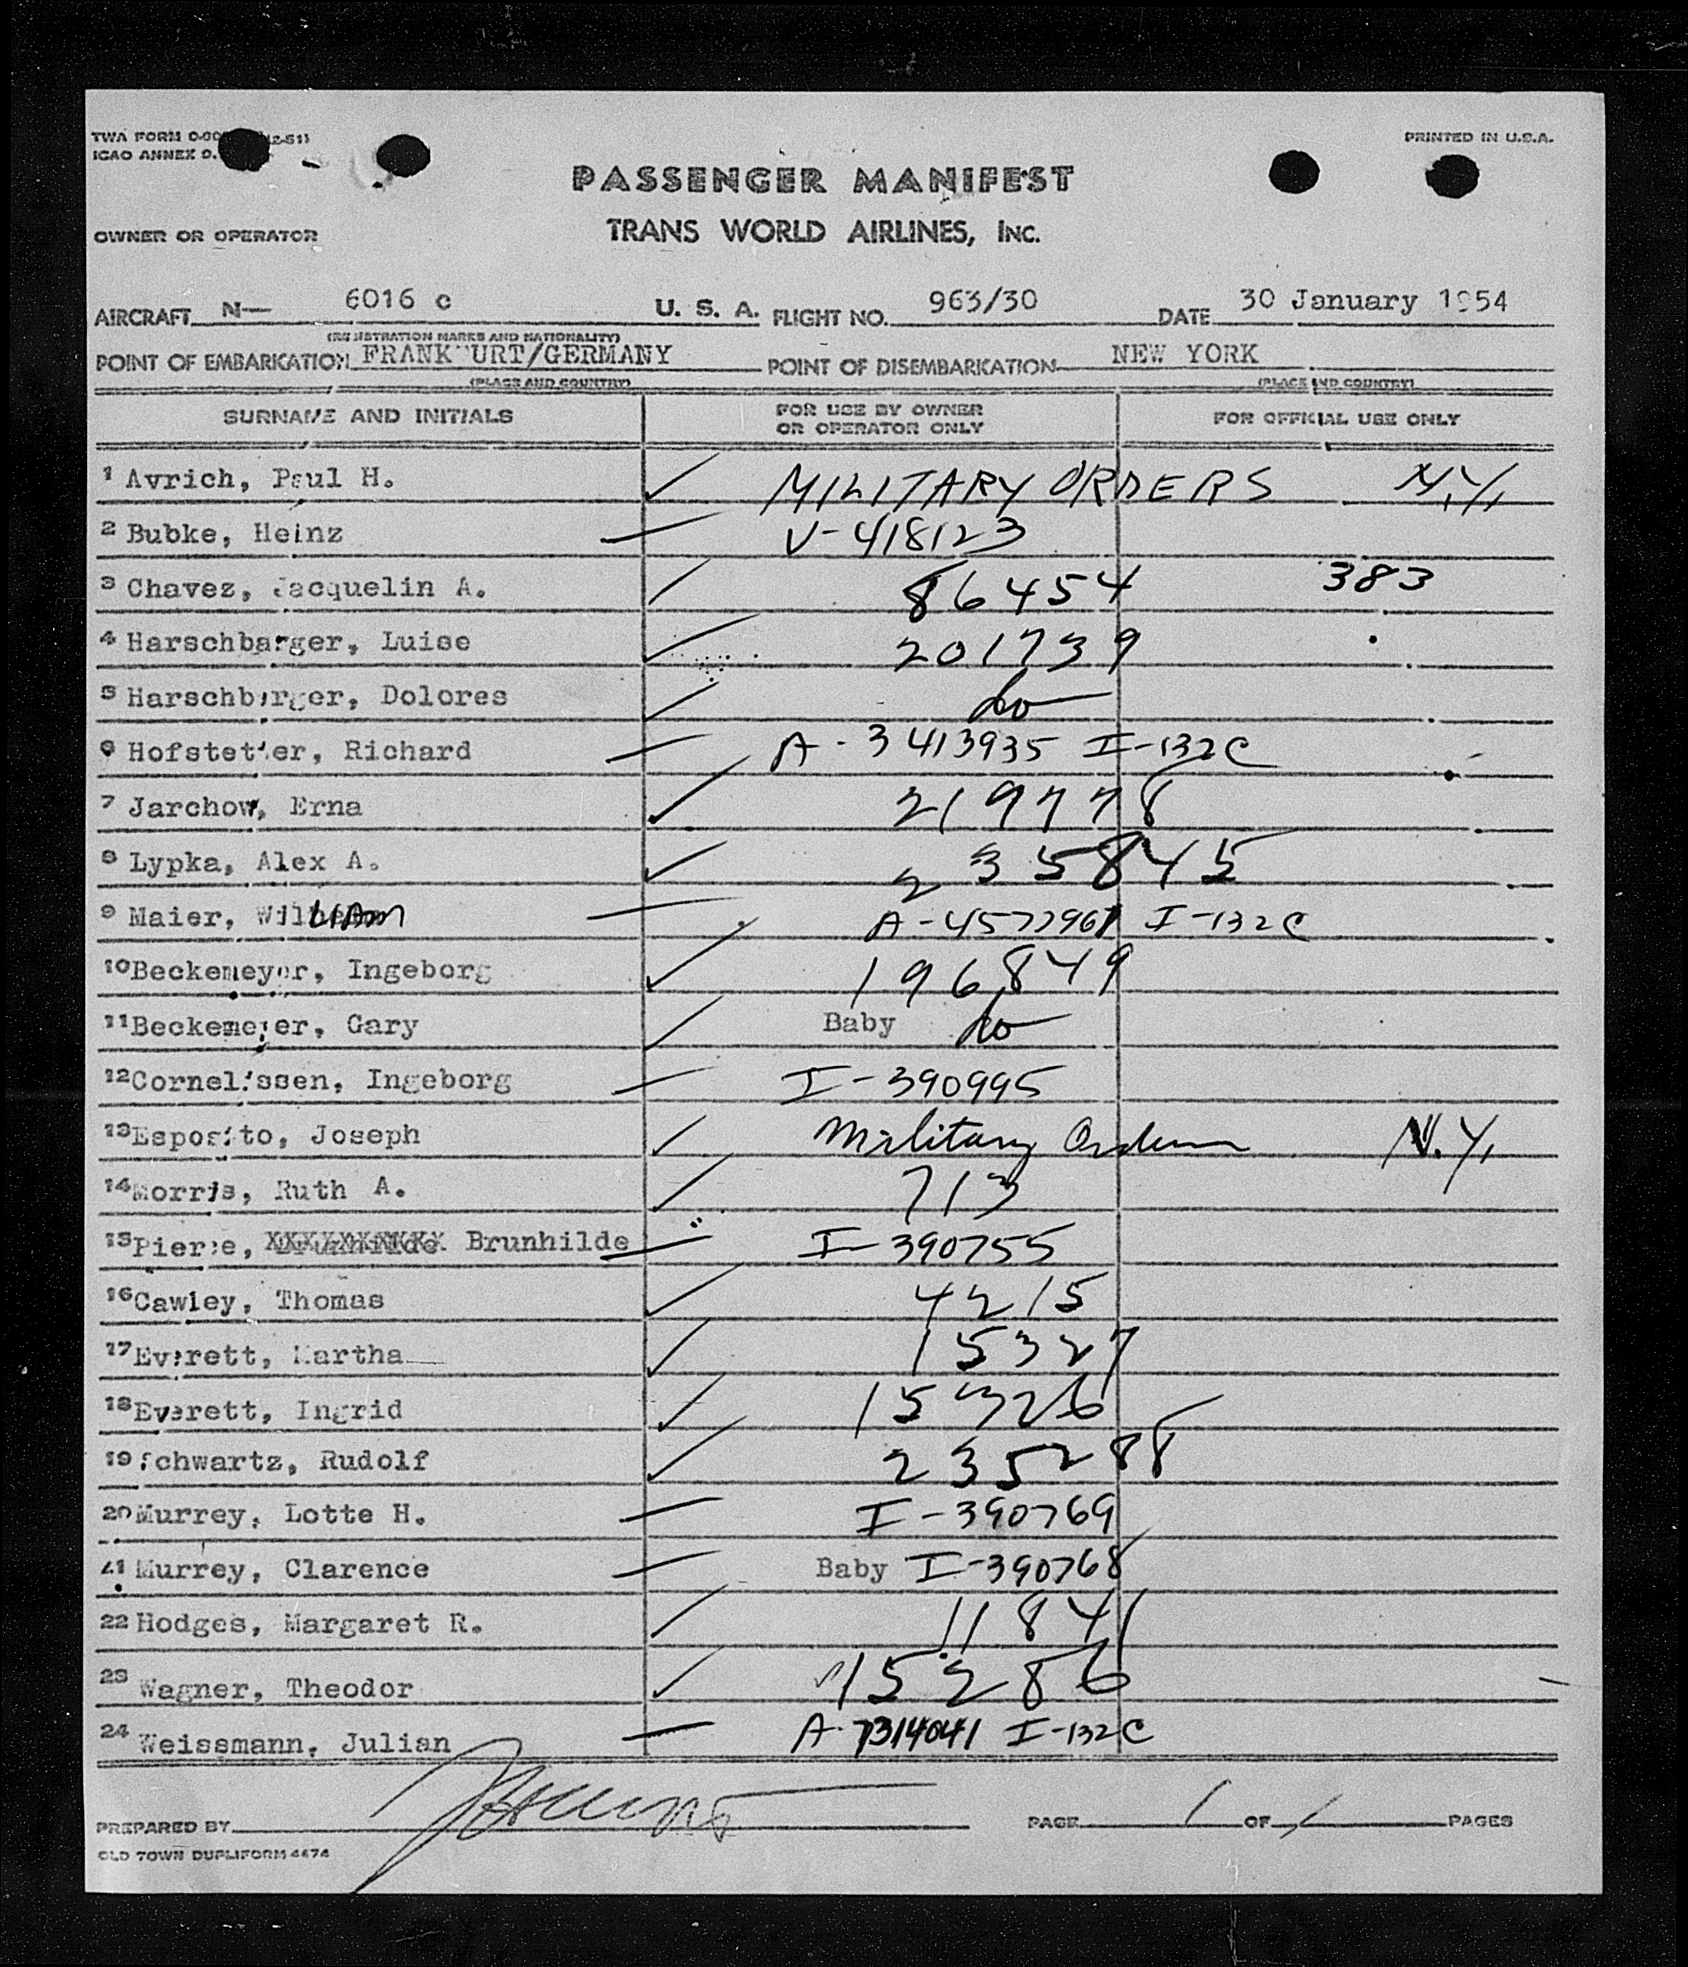 TWA FORM 0-00 12-51)
ICAO ANNEX 9.
PRINTED IN U.S.A.
PASSENGER MANIFEST
OWNER OR OPERATOR
TRANS WORLD AIRLINES, INC.
AIRCRAFT N— 6016 c U. S. A. FLIGHT NO. 963/30 DATE 30 January 1954
(REGISTRATION MARKS AND NATIONALITY)
POINT OF EMBARKATION FRANKFURT/GERMANY POINT OF DISEMBARKATION NEW YORK
(PLACE AND COUNTRY) (PLACE AND COUNTRY)
SURNAME AND INITIALS FOR USE BY OWNER OR OPERATOR ONLY FOR OFFICIAL USE ONLY
1 Avrich, Paul H. ✓ MILITARY ORDERS N.Y.
2 Bubke, Heinz — V-418123
3 Chavez, Jacquelin A. ✓ 86454 383
4 Harschbarger, Luise ✓ 201739
5 Harschbarger, Dolores ✓ do
6 Hofstetter, Richard — A-3413935 I-132C
7 Jarchow, Erna ✓ 219778
8 Lypka, Alex A. ✓ 235845
9 Maier, William — A-4577967 I-132C
10 Beckemeyer, Ingeborg ✓ 196849
11 Beckemeyer, Gary ✓ Baby do
12 Cornelissen, Ingeborg — I-390995
13 Esposito, Joseph ✓ Military Orders N.Y.
14 Morris, Ruth A. ✓ 713
15 Pierce, Brunhilde — I-390755
16 Cawley, Thomas ✓ 4215
17 Everett, Martha ✓ 15327
18 Everett, Ingrid ✓ 15326
19 Schwartz, Rudolf ✓ 235288
20 Murrey, Lotte H. — I-390769
21 Murrey, Clarence — Baby I-390768
22 Hodges, Margaret R. ✓ 11841
23 Wagner, Theodor ✓ 15286
24 Weissmann, Julian — A-7314041 I-132C
PREPARED BY PAGE 1 OF 1 PAGES
OLD TOWN DUPLIFORM 4474